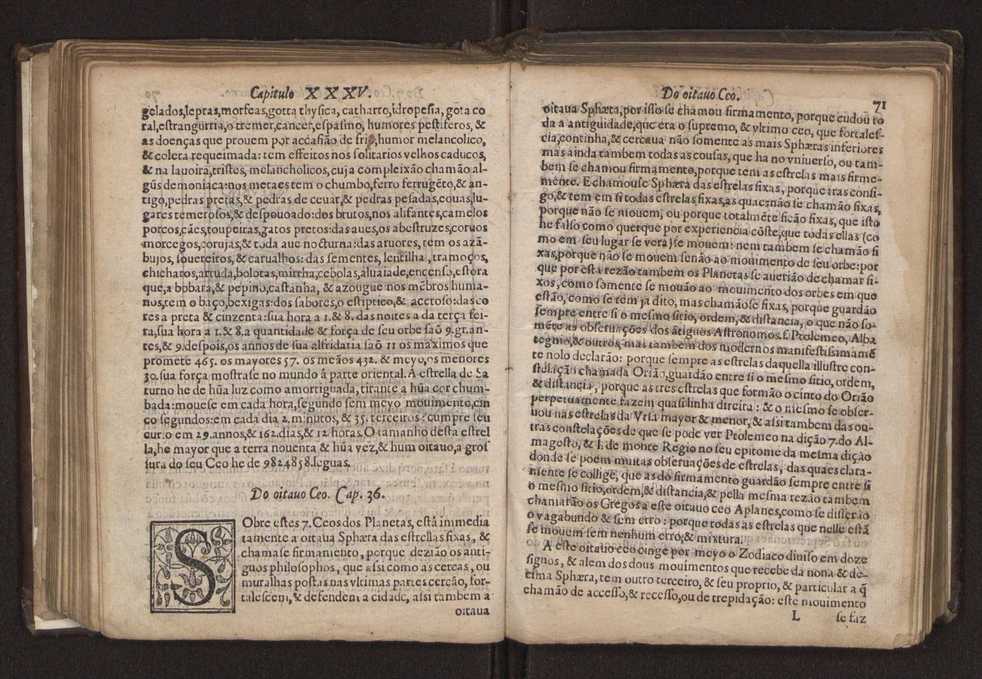 Capitulo XXXV.
gelados,lepras,morfeas,gotta thysica, catharro,idropesia, gota co
ral,estranguria,o tremer,cancer,espasmo, humores pestiferos, &
as doenças que prouem por accasião de frio,humor melancolico,
& colera requeimada: tem effeitos nos solitarios velhos caducos,
& na lauoira,tristes, melancholicos,cuja compleixão chamão al-
gũs demoniaca:nos metaes tem o chumbo,ferro ferrugẽto,& an-
tigo,pedras pretas,& pedras de ceuar,& pedras pesadas,couas,lu-
gares temerosos,& despouoado:dos brutos,nos alifantes,camelos
porcos,cães,toupeiras,gatos pretos:das aues,os abestruzes,coruos
morcegos,corujas,& toda aue nocturna:das aruores, tem os azã-
bujos, souereiros, & carualhos: das sementes, lentilha, tramoços,
chicharos,arruda,bolotas,mirrha,cebolas,aluaiade,encenso,estora
que,a barbara,& pepino,castanha, & azougue nos mẽbros huma-
nos,tem o baço,bexigas:dos sabores,o estiptico,& acetoso:das co
res a preta & cinzenta:sua hora a 1.& 8. das noites a da terça fei-
ra,sua hora a 1.& 8,a quantidade & força de seu orbe saõ 9.gr.an-
tes,& 9.despois,os annos de sua alfridaria saõ 11 os maximos que
promete 465. os mayores 57. os meãos 432. & meyo,os menores
30.sua força mostrase no mundo â parte oriental. A estrella de Sa
turno he de hũa luz como amortiguada, tirante a hũa cor chum-
bada:mouese em cada hora,segundo sem meyo mouimento,cin
co segundos:em cada dia 2. minutos, & 35. terceiros: cumpre seu
curso em 29.annos,& 162.dias,& 12 horas.O tamanho desta estrel
la,he mayor que a terra nouenta & hũa vez,& hum oitauo,a gros
sura do seu Ceo he de 9824858.leguas.
Do oitauo Ceo. Cap. 36.
SObre estes 7. Ceos dos Planetas, está immedia
tamente a oitaua Sphæra das estrellas fixas, &
chamase firmamento, porque dezião os anti-
guos philosophos, que assi como as cercas, ou
muralhas postas nas vltimas partes cercão, for-
talescem, & defendem a cidade, assi tambem a
oitaua
Do oitauo Ceo.
71
oitaua Sphæra,por isso se chamou firmamento, porque cudou to
da a antiguidade,que era o supremo, & vltimo ceo, que fortales-
cia,continha,& cercaua não somente as mais Sphæras inferiores
mas ainda tambem todas as cousas, que ha no vniuerso, ou tam-
bem se chamou firmamento,porque tem as estrelas mais firme-
mente. E chamouse Sphæra das estrelas fixas, porque tras consi-
go,& tem em si todas estrelas fixas,as quaes não se chamão fixas,
porque não se mouem; ou porque totalmẽte sejão fixas, que isto
he falso como querque por experiencia cõste,que todas ellas (co
mo em seu lugar se vera) se mouem: nem tambem se chamão fi
xas,porque não se mouem senão ao mouimento de seu orbe:por
que por esta rezão tambem os Planetas se auerião de chamar fi-
xos, como somente se mouão ao mouimento dos orbes em que
estão,como se tem ja dito, mas chamãose fixas, porque guardão
sempre entre si o mesmo sitio, ordem,& distancia, o que não so-
mẽte as obseruações dos ãtiguos Astronomos.s.Ptolemeo, Alba
tegnio,& outros, mas tambem dos modernos manifestissimamẽ
te nolo declarão: porque sempre as estrelas daquella illustre con-
stellação chamada Orião,guardão entre si o mesmo sitio, ordem,
& distancia, porque as tres estrelas que formão o cinto do Orião
perpetuamente fazem quasi linha direita: & o mesmo se obser-
uou nas estrelas da Vrsa mayor & menor,& assi tambem das ou-
tras constelações de que se pode ver Ptolemeo na dição 7.do Al-
magosto, & I. de monte Regio no seu epitome da mesma dição
donde se poem muitas obseruações de estrelas, das quaes clara-
mente se collige, que as do firmamento guardão sempre entre si
o mesmo sitio,ordem,& distancia,& pella mesma rezão tambem
chamarão os Gregos a este oitauo ceo Aplanes,como se disserão
o vagabundo & sem erro: porque todas as estrelas que nelle estã
se mouem sem nenhum erro,& mixtura.
A este oitauo ceo cinge por meyo o Zodiaco diuiso em doze
signos, & alem dos dous mouimentos que recebe da nona & de-
cima Sphæra, tem outro terceiro, & seu proprio, & particular a q̃
chamão de accesso,& recesso,ou de trepidação: este mouimento
L se faz